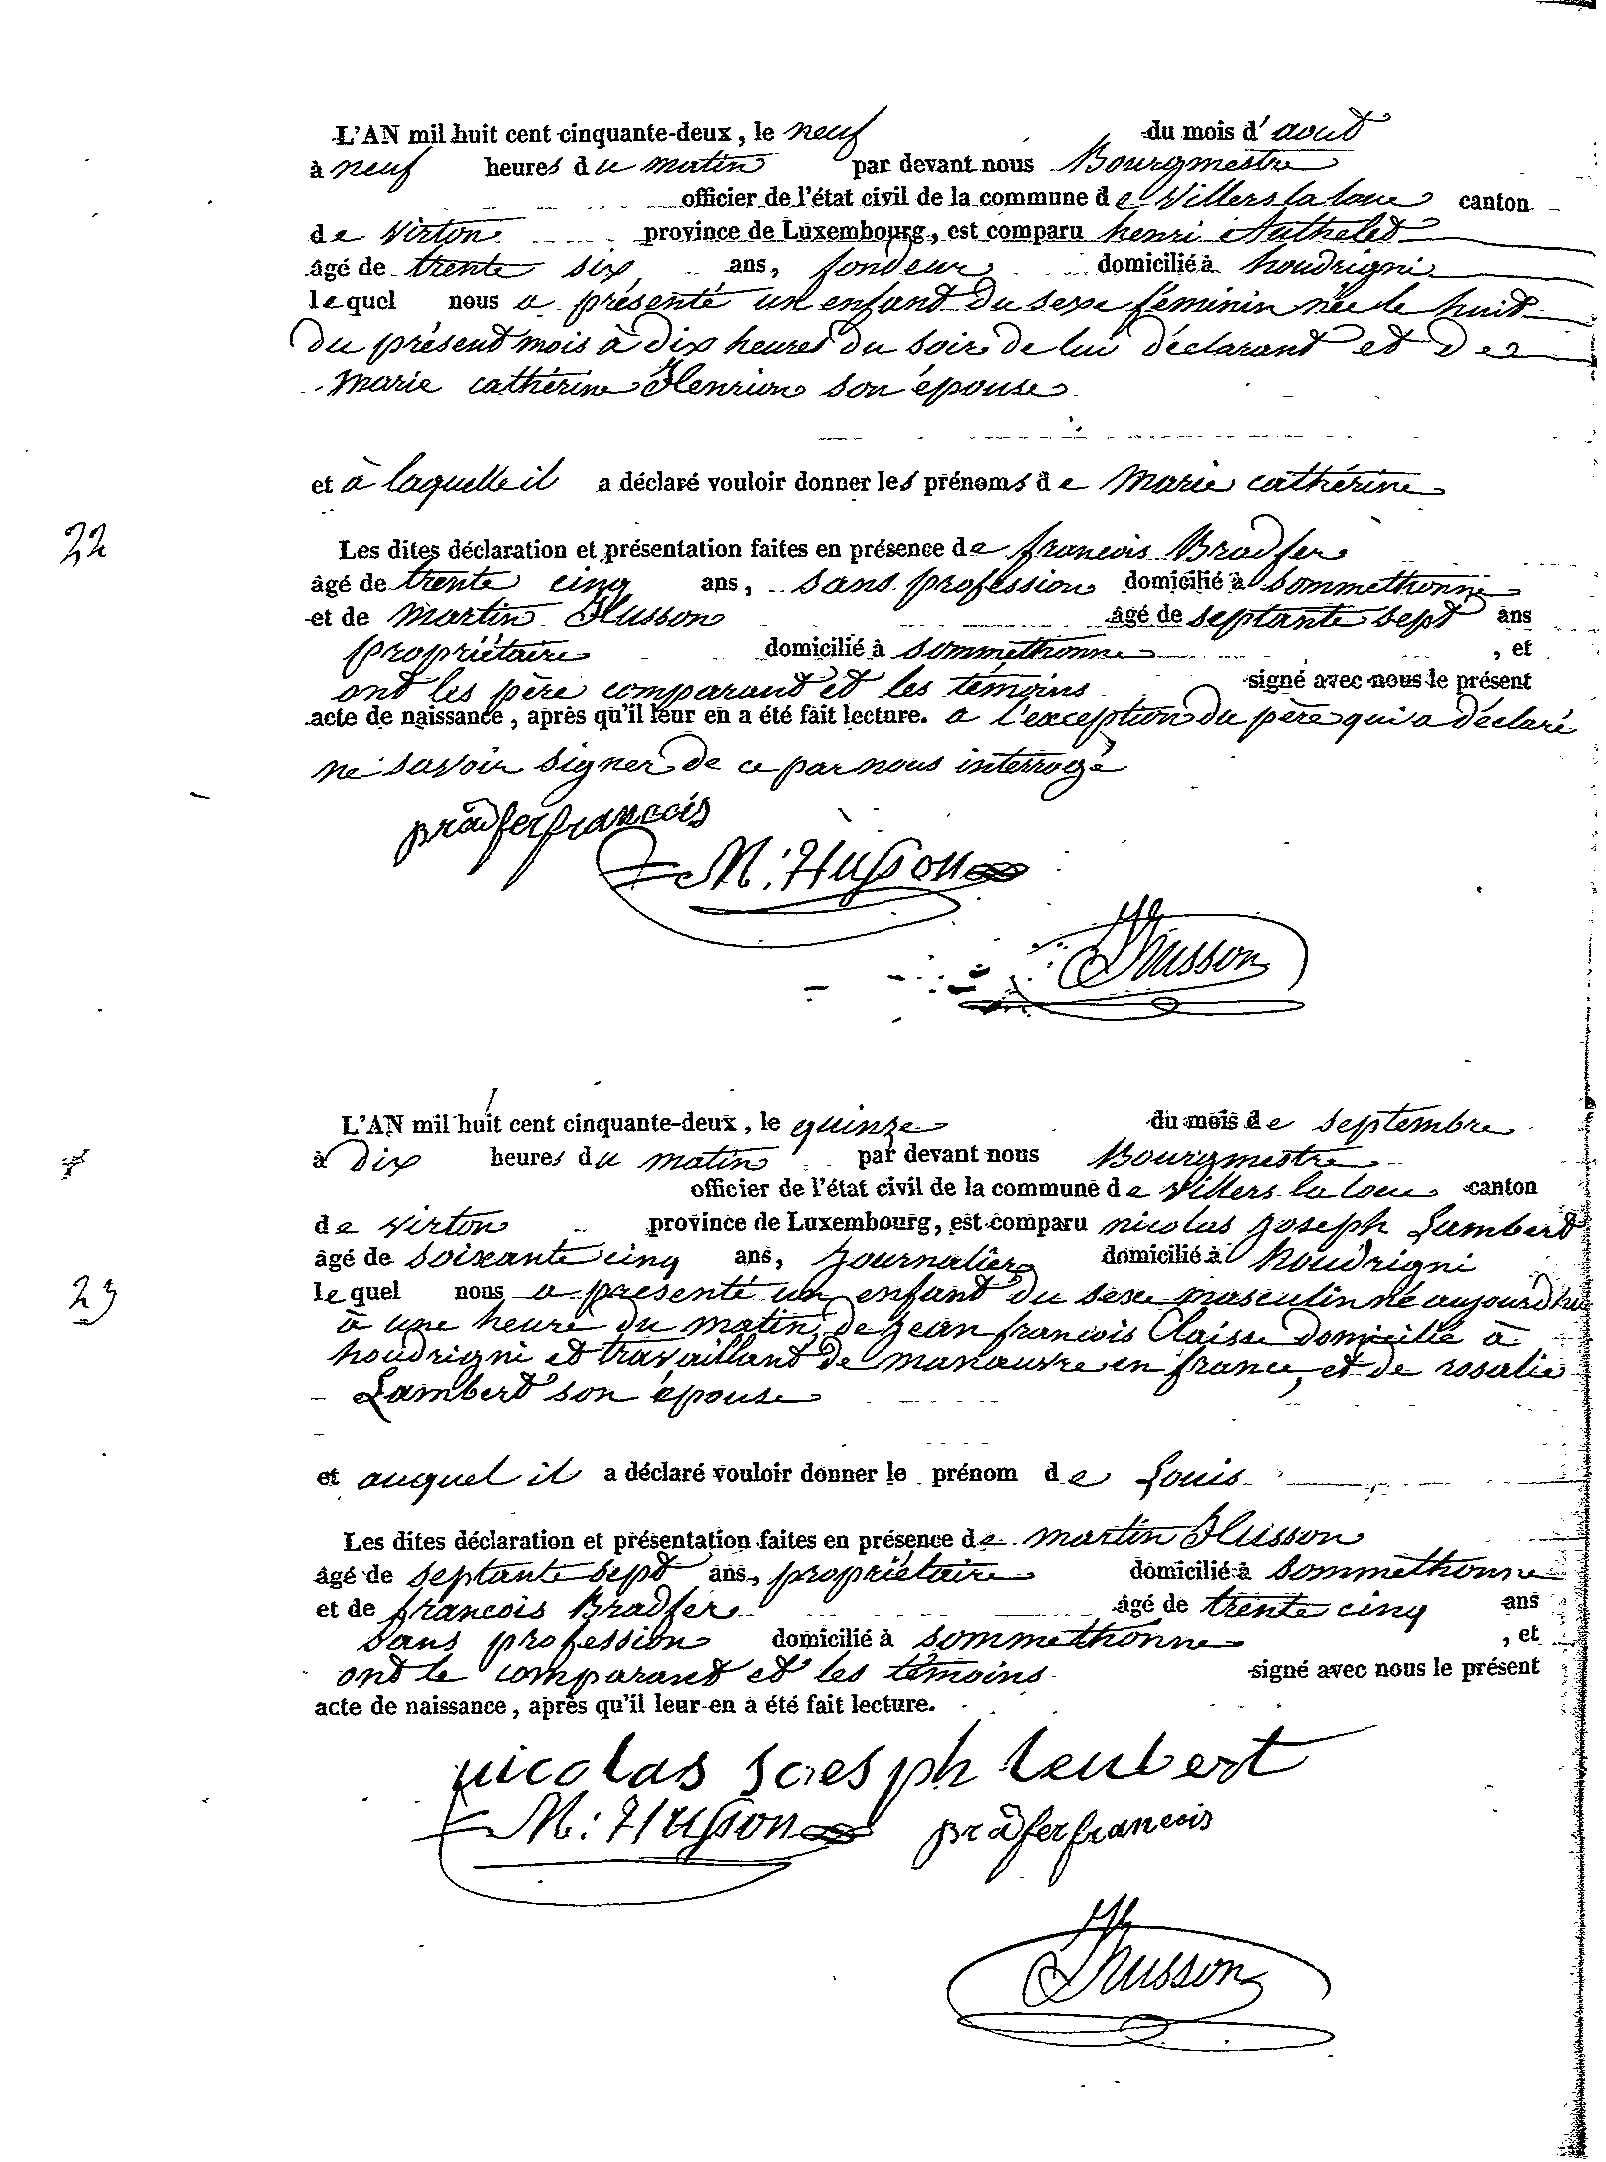 L'AN mil huit cent cinquante-deux, le neuf du mois d'aout
à neuf heures du matin par devant nous Bourgmestre
officier de l'état civil de la commune de Villers la loue canton
de Virton province de Luxembourg, est comparu henri Authelet
âgé de trente six ans, fondeur domicilié à houdrigni
lequel nous a présenté un enfant du sexe féminin née le huit
du présent mois à dix heures du soir de lui déclarant et de
marie cathérine Henrion son épouse
et à laquelle il a déclaré vouloir donner les prénoms de marie cathérine
22
Les dites déclaration et présentation faites en présence de francois Bradfer
âgé de trente cinq ans, sans profession domicilié à Sommethonne
et de martin Husson âgé de septante sept ans
propriétaire domicilié à Sommethonne , et
ont les père comparant et les témoins signé avec nous le présent
acte de naissance, après qu'il leur en a été fait lecture. a l'exception du père qui a déclaré
ne savoir signer de ce par nous interrogé
pradfer francois
M: Husson
Husson
L'AN mil huit cent cinquante-deux, le quinze du mois de septembre
à dix heures du matin par devant nous Bourgmestre
officier de l'état civil de la commune de Villers la loue canton
de Virton province de Luxembourg, est comparu nicolas joseph Lambert
âgé de soixante cinq ans, journalier domicilié à houdrigni
23
lequel nous a présenté un enfant du sexe masculin né aujourdhui
à une heure du matin de jean francois Claisse domicilié à
houdrigni et travaillant de manœuvre en france, et de rosalie
Lambert son épouse
et auquel il a déclaré vouloir donner le prénom de Louis
Les dites déclaration et présentation faites en présence de martin Husson
âgé de septante sept ans, propriétaire domicilié à Sommethonne
et de francois Bradfer âgé de trente cinq ans
sans profession domicilié à Sommethonne , et
ont le comparant et les témoins signé avec nous le présent
acte de naissance, après qu'il leur en a été fait lecture.
nicolas soesph leubert
M: Husson pradfer francois
Husson